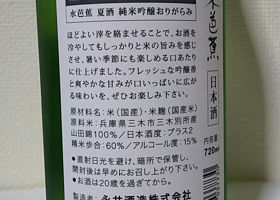 水芭蕉 夏酒 純米吟醸おりがらみ
ほどよい滓を絡ませることで、お酒
を冷やしてもしっかりと米の旨みを感じ
させ、暑い季節にも楽しめる口あた
りに仕上げました。フレッシュな吟醸香
と爽やかな甘みが口いっぱいに広
がる味わいを、ぜひお楽しみ下さい。
原材料名:米(国産米)・米麹(国産米)
原料米:兵庫県三木市三木別所産
山田錦100%/日本酒度:プラス2
精米歩合:60%/アルコール:15%
●直射日光を避け、暗所で保管し、
開封後は早めにお召し上がり下さい。
●お酒は20歳を過ぎてから。
製造者:永井酒造株式会社
水芭蕉
日本酒
内容量
720ml